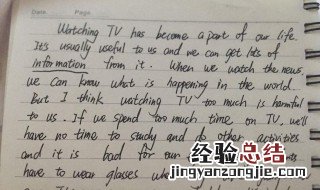 Date. Page
Watching TV has become a part of our life.
It's usually useful to us and we can get lots of
information from it. When we watch the news,
we can know what is happening in the world.
But I think watching TV too much is harmful
to us. If we spend too much time on TV, we'll
have no time to study and do other activities
and it is bad for our
have to wear glasses
经验总结
jingyanzongjie.com